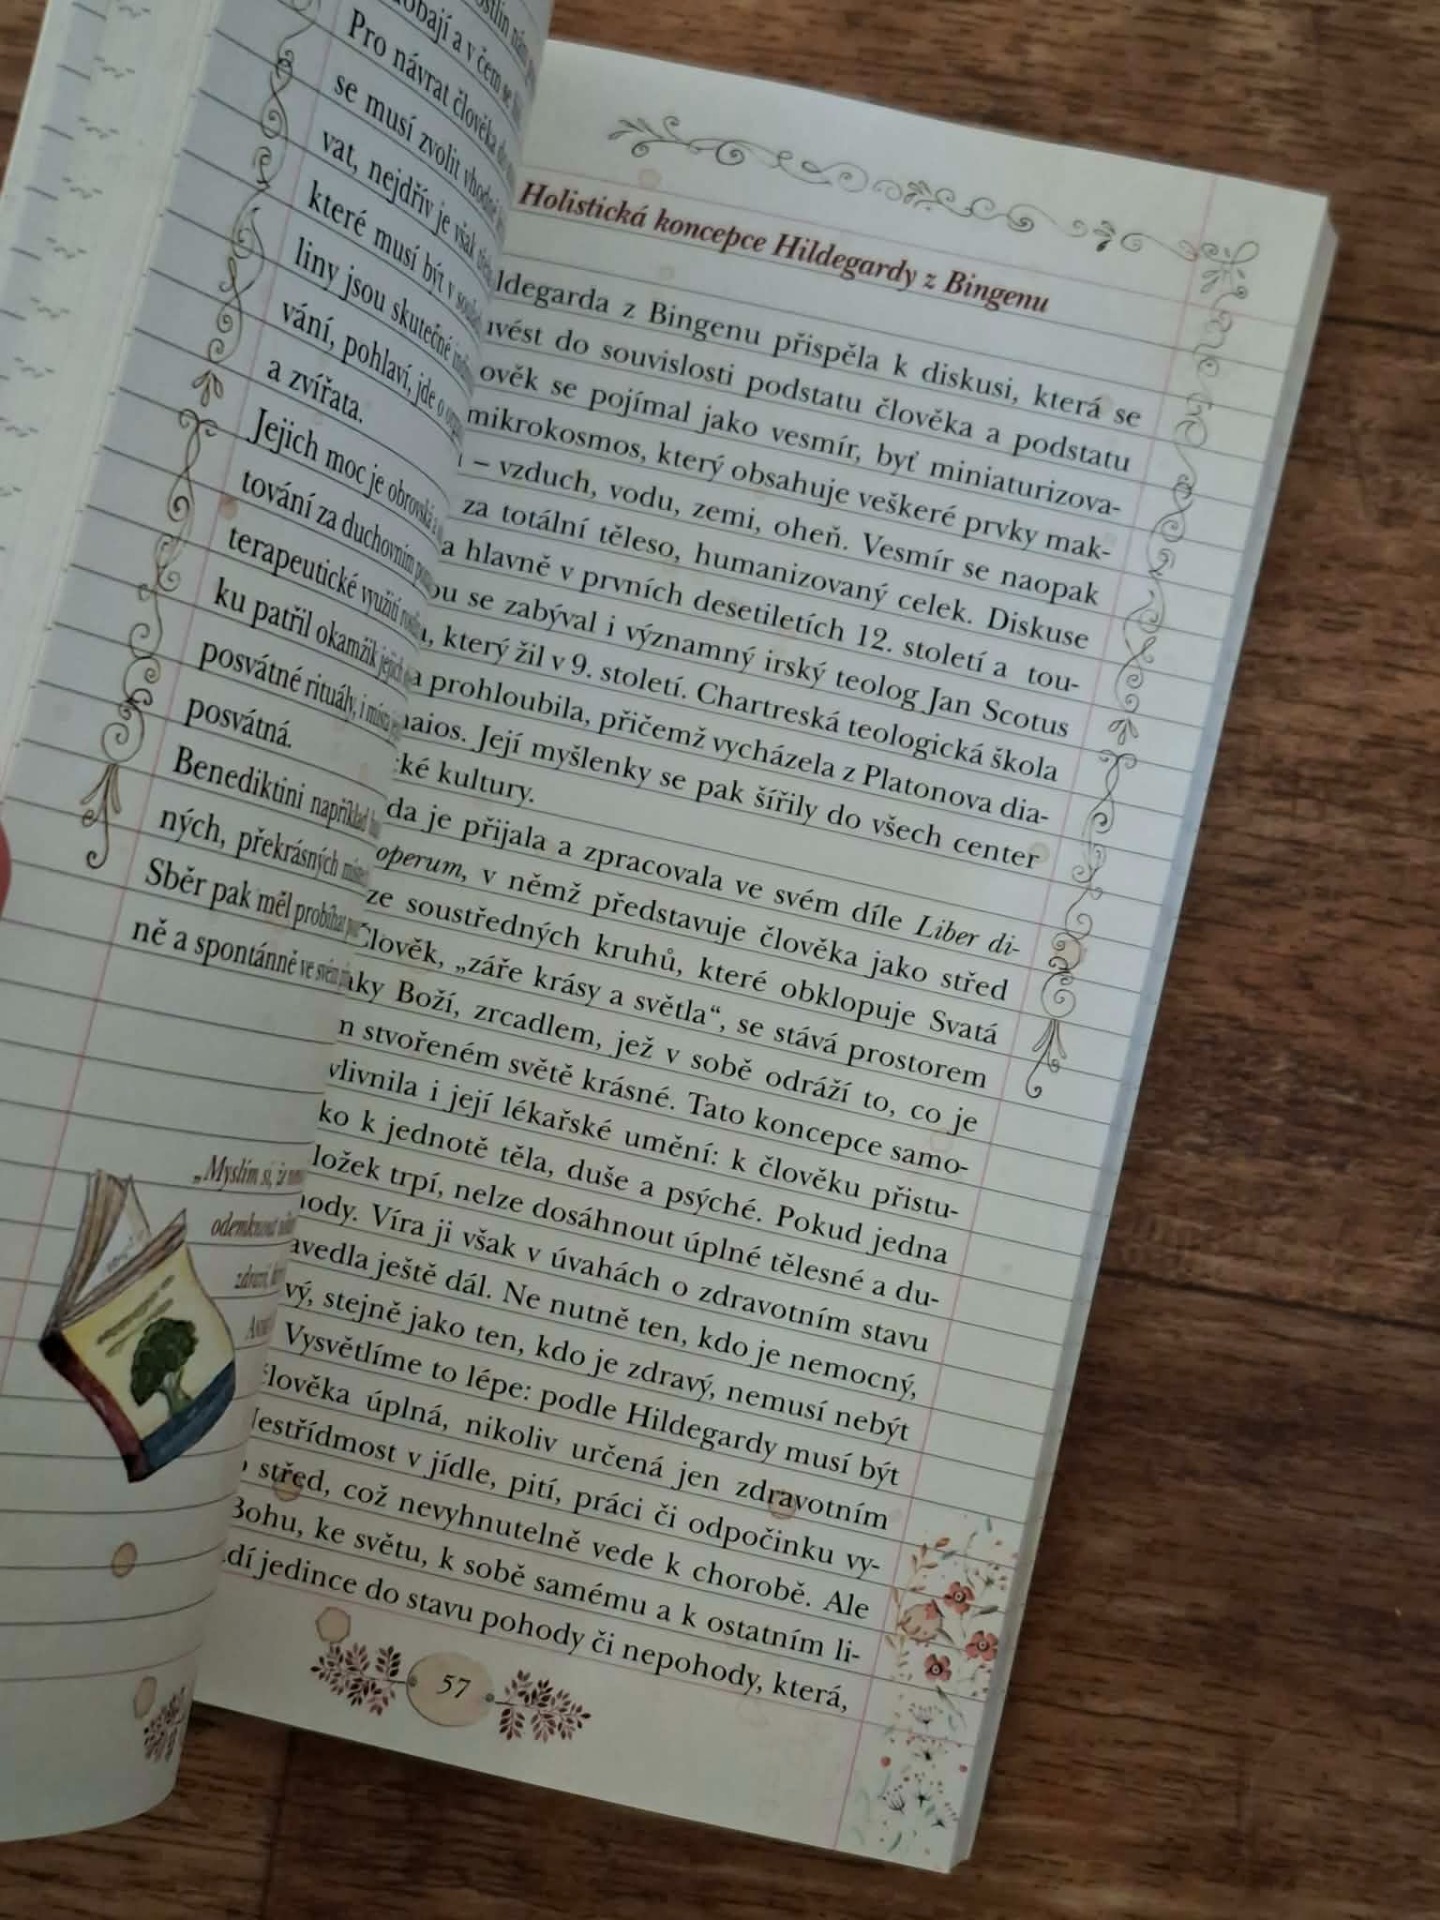 Pro návrat člověka
se musí zvolit vhodné
vat, nejdřív je však
které musí být v
liny jsou skutečné
vání, pohlaví, jde o
a zvířata.
Jejich moc je obrovská a
tování za duchovním
terapeutické využití
ku patřil okamžik jejich
posvátné rituály, i místa
posvátná.
Benediktini například
ných, překrásných
Sběr pak měl probíhat
ně a spontánně ve svém
„Myslím si, že
odemknout
zdraví,
Holistická koncepce Hildegardy z Bingenu
ldegarda z Bingenu přispěla k diskusi, která se
uvést do souvislosti podstatu člověka a podstatu
ověk se pojímal jako vesmír, byť miniaturizova-
mikrokosmos, který obsahuje veškeré prvky mak-
– vzduch, vodu, zemi, oheň. Vesmír se naopak
za totální těleso, humanizovaný celek. Diskuse
a hlavně v prvních desetiletích 12. století a tou-
ou se zabýval i významný irský teolog Jan Scotus
, který žil v 9. století. Chartreská teologická škola
a prohloubila, přičemž vycházela z Platonova dia-
aios. Její myšlenky se pak šířily do všech center
ké kultury.
da je přijala a zpracovala ve svém díle Liber di-
operum, v němž představuje člověka jako střed
ze soustředných kruhů, které obklopuje Svatá
Člověk, „záře krásy a světla“, se stává prostorem
aky Boží, zrcadlem, jež v sobě odráží to, co je
n stvořeném světě krásné. Tato koncepce samo-
vlivnila i její lékařské umění: k člověku přistu-
ko k jednotě těla, duše a psýché. Pokud jedna
ložek trpí, nelze dosáhnout úplné tělesné a du-
hody. Víra ji však v úvahách o zdravotním stavu
avedla ještě dál. Ne nutně ten, kdo je nemocný,
vý, stejně jako ten, kdo je zdravý, nemusí nebýt
Vysvětlíme to lépe: podle Hildegardy musí být
člověka úplná, nikoliv určená jen zdravotním
Nestřídmost v jídle, pití, práci či odpočinku vy-
střed, což nevyhnutelně vede k chorobě. Ale
Bohu, ke světu, k sobě samému a k ostatním li-
dí jedince do stavu pohody či nepohody, která,
57